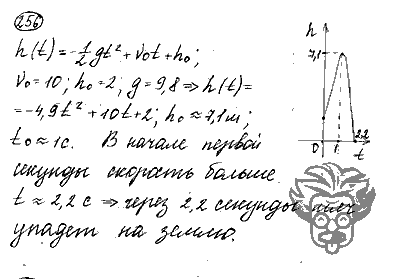 256
h(t)=-1/2gt²+v₀t+h₀;
v₀=10; h₀=2; g=9,8⇒h(t)=
=-4,9t²+10t+2; h₀≈7,1м;
t₀≈1с. В начале первой
секунды скорость больше.
t≈2,2с⇒через 2,2 секунды мяч
упадет на землю.
h
7,1
0 1 2,2
t